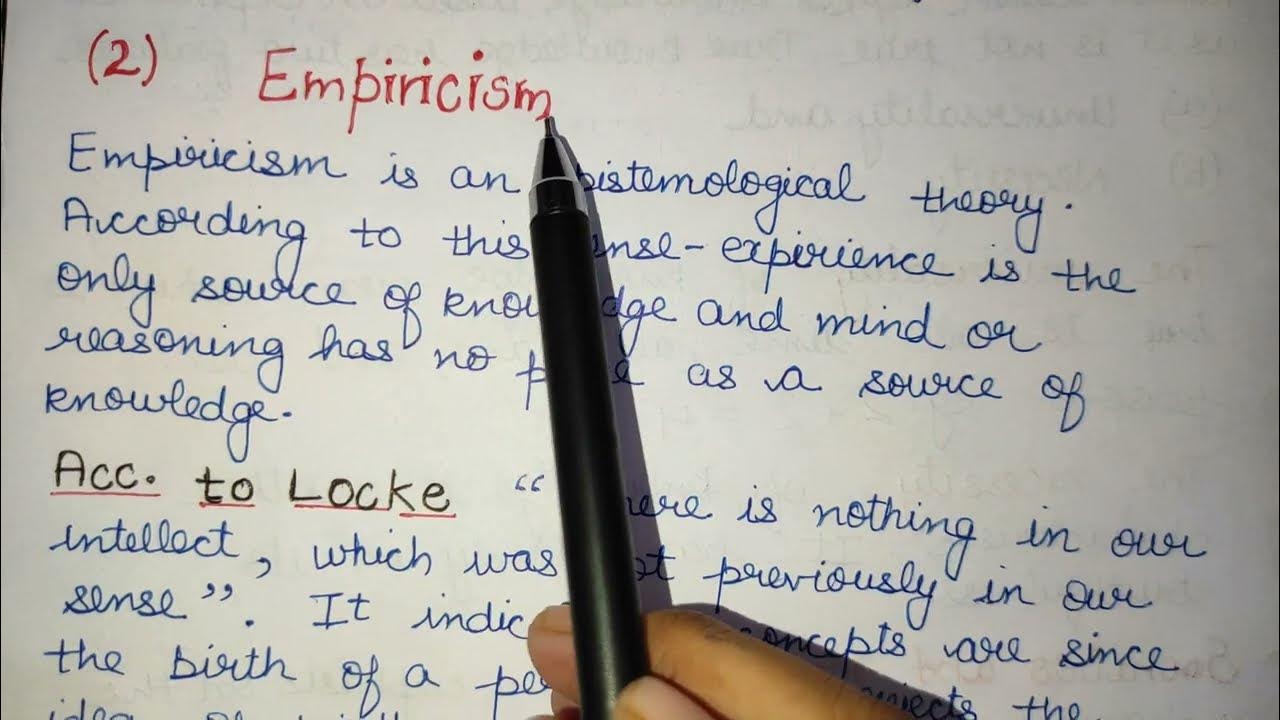 (2) Empiricism
Empiricism is an epistemological theory.
According to this sense-expirience is the
only source of knowledge and mind or
reasoning has no place as a source of
knowledge.
Acc. to Locke “There is nothing in our
intellect, which was not previously in our
sense”. It concepts are since
the birth of a the